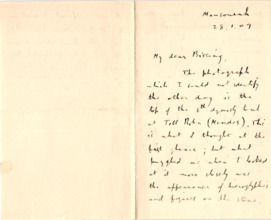 Mansourah
28.1.09
My dear Bissing,
The photograph
which I could not identify
the other day is the
top of the 6th dynasty tomb
at Tell Roba (Mendes). This
is what I thought at the
first glance; but what
puzzled me when I looked
at it more closely was
the appearance of hieroglyphics
and figures on the